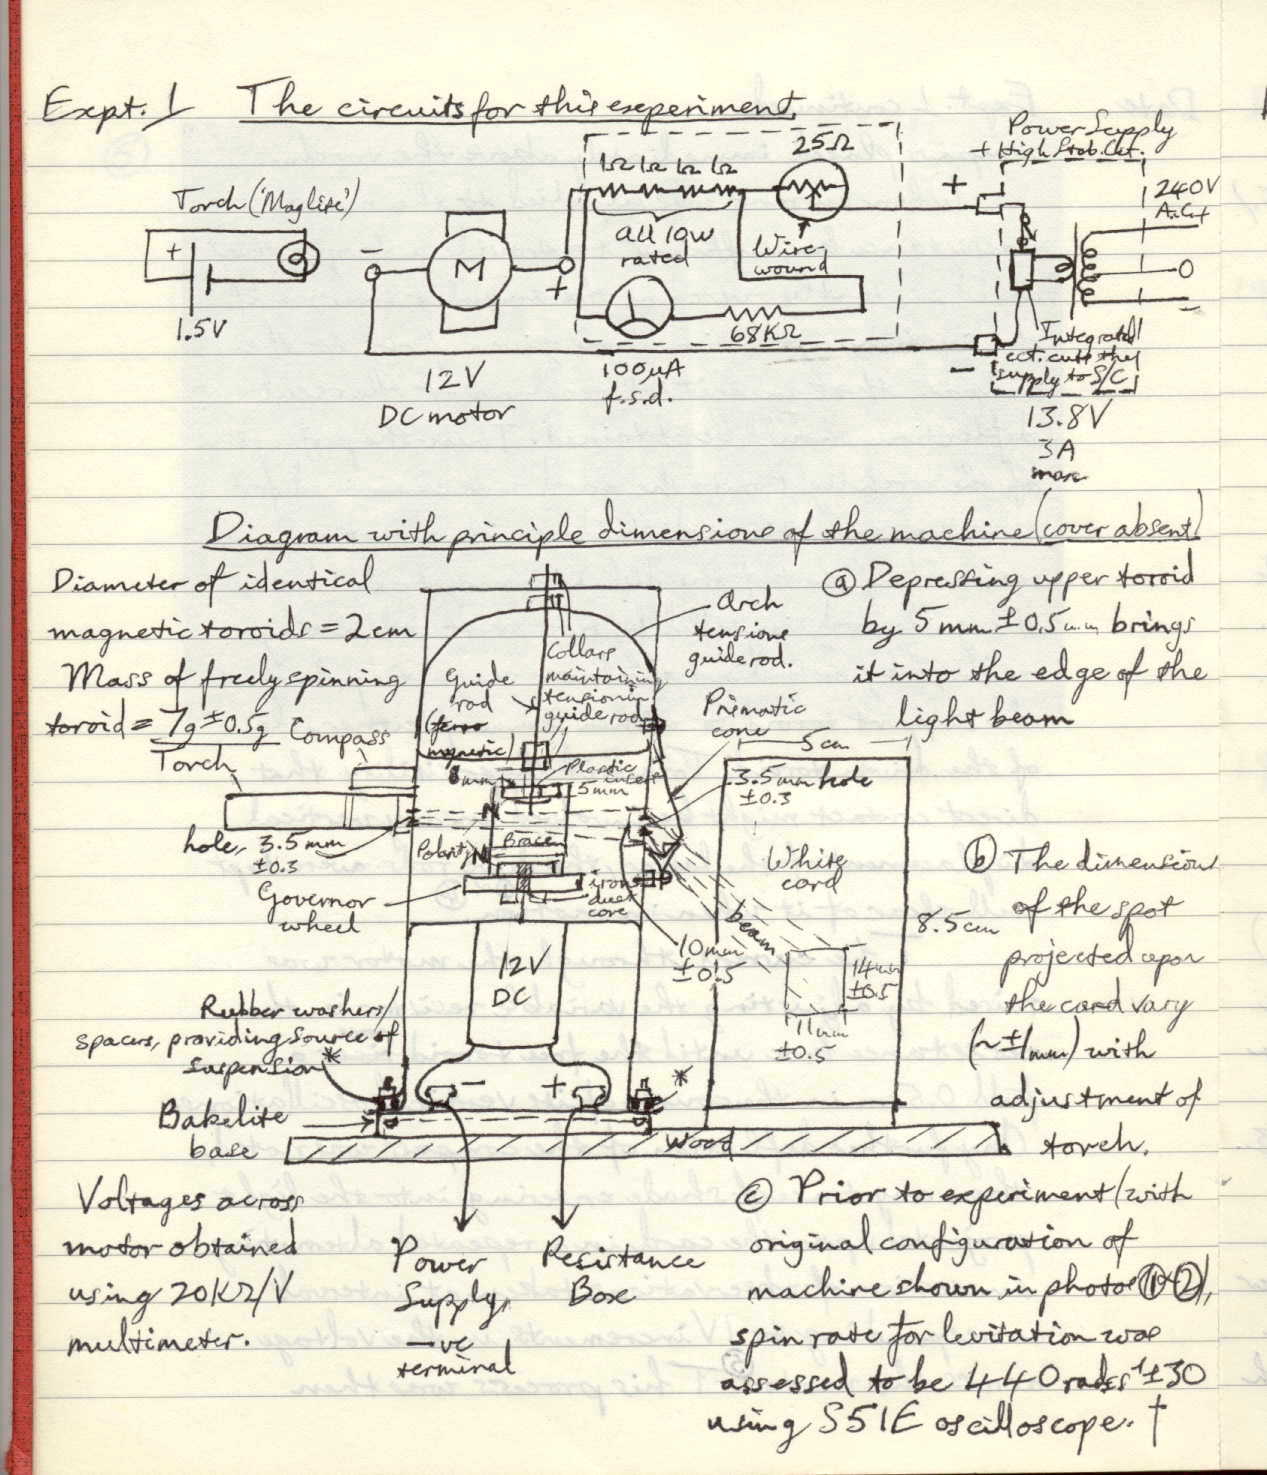 Expt. 1 The circuits for this experiment.
Torch ('Maglite')
+
1.5V
-
M
+
12V
DC motor
1Ω 1Ω 1Ω 1Ω
25Ω
all 10W
rated
Wire-
wound
68KΩ
100µA
f.s.d.
Power Supply
+ High Stab. Cct.
+
240V
A.C.
0
-
Integrated
cct. cuts the
supply to S/C
13.8V
3A
max
Diagram with principle dimensions of the machine (cover absent)
Diameter of identical
magnetic toroids = 2cm
Mass of freely spinning
toroid = 7g ±0.5g
Compass
Torch
hole, 3.5mm
±0.3
Governor
wheel
Guide
rod
magnetic)
8mm
Collars
maintaining
tension in
guide rod
Arch
tensions
guide rod.
Prismatic
cone
Plastic
insert
5mm
N
Polarity
N
Braces
iron
dust
core
12V
DC
- +
10mm
±0.5
beam
5cm
3.5mm hole
±0.3
White
card
8.5cm
14mm
±0.5
11mm
±0.5
Rubber washers/
spacers, providing source of
suspension
*
*
Bakelite
base
Wood
Voltages across
motor obtained
using 20KΩ/V
multimeter.
Power
Supply,
-ve
terminal
Resistance
Box
ⓐ Depressing upper toroid
by 5mm ±0.5mm brings
it into the edge of the
light beam
ⓑ The dimensions
of the spot
projected upon
the card vary
(~±1mm) with
adjustment of
torch.
ⓒ Prior to experiment (with
original configuration of
machine shown in photos ①+②),
spin rate for levitation was
assessed to be 440 rads⁻¹ ±30
using S51E oscilloscope. †